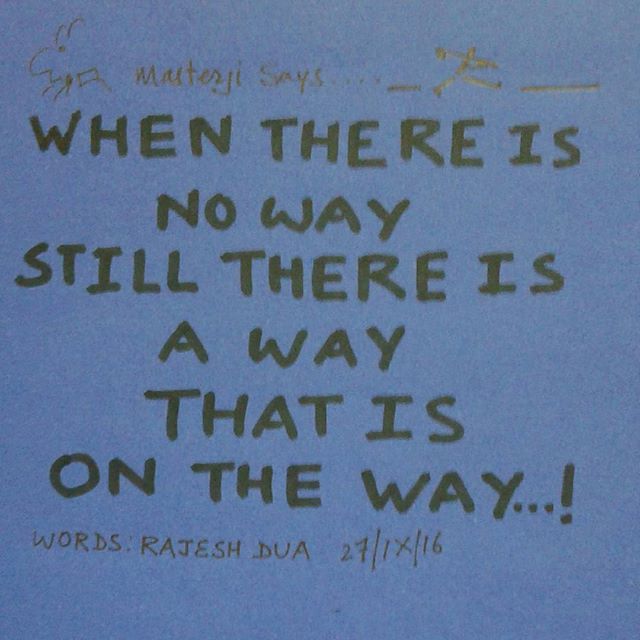 Masterji Says.....
WHEN THERE IS
NO WAY
STILL THERE IS
A WAY
THAT IS
ON THE WAY...!
WORDS: RAJESH DUA 27/IX/16